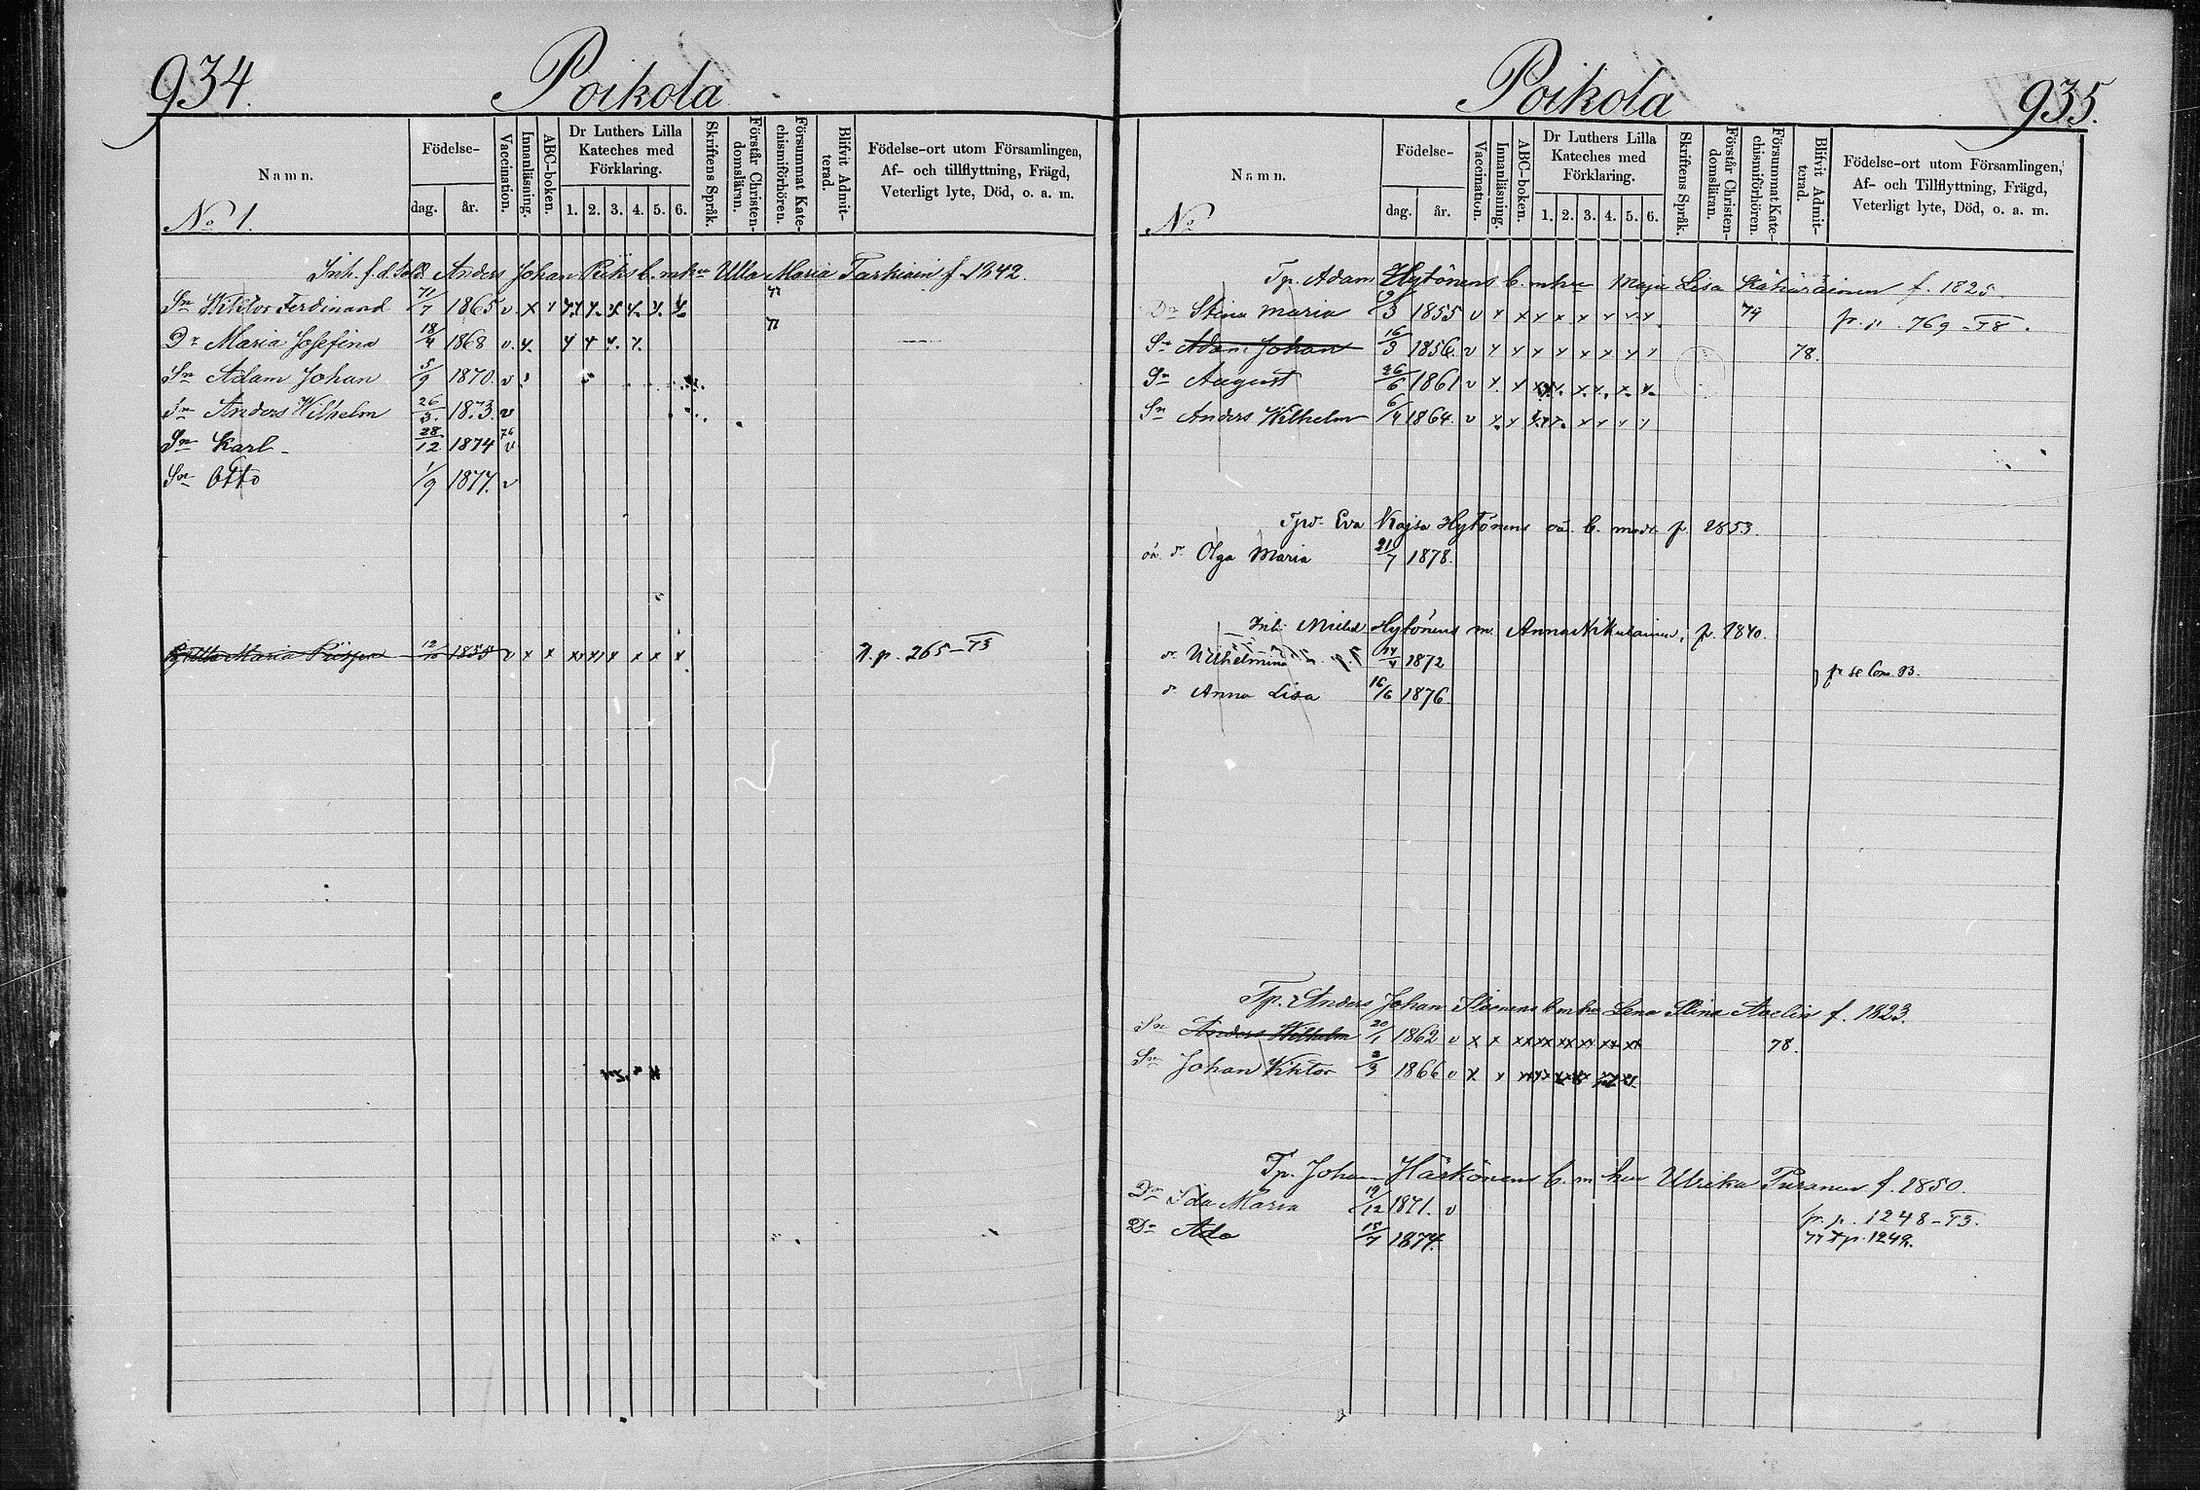 934.
Poikola
Namn.
Födelse-
dag.
år.
Vaccination.
Innanläsning.
ABC-boken.
Dr Luthers Lilla
Kateches med
Förklaring.
1. 2. 3. 4. 5. 6.
Skriftens Språk.
Förstår Christen-
domsläran.
Försummat Kate-
chismiförhören.
Blifvit Admit-
terad.
Födelse-ort utom Församlingen,
Af- och tillflyttning, Frägd,
Veterligt lyte, Död, o. a. m.
No 1.
Inh. f. d. Sold. Anders Johan b. m hu Ulla Maria f. 1842.
Sn Wiktor Ferdinand /7 1865 v x
77
Dr Maria Josefina 18/4 1868 v
77
Sn Adam Johan 5/9 1870 v
Sn Anders Wilhelm 26/3 1873 v
Sn Karl 28/12 1874 76 v
Sn Otto 1/9 1877 v
Ulla Maria v x x x x x x x x p. 265-73
Poikola
935.
Namn.
Födelse-
dag.
år.
Vaccination.
Innanläsning.
ABC-boken.
Dr Luthers Lilla
Kateches med
Förklaring.
1. 2. 3. 4. 5. 6.
Skriftens Språk.
Förstår Christen-
domsläran.
Försummat Kate-
chismiförhören.
Blifvit Admit-
terad.
Födelse-ort utom Församlingen,
Af- och Tillflyttning, Frägd,
Veterligt lyte, Död, o. a. m.
No
Tp. Adam Hytönens b. m hu Maja Lisa Kähäräinen f. 1825.
Dr Stina Maria 9/3 1855 v x x x x x x x x 79 fr. p. 769-78.
Sn Adam Johan 16/3 1856 v x x x x x x x x 78.
Sn August 26/6 1861 v x x x x x x x x
Sn Anders Wilhelm 6/4 1864 v x x x x x x x x
Eva Kajsa Hytönens oä. b. mod. f. 1853.
oä. d. Olga Maria 21/7 1878.
Inh. Hytönens m. Anna f. 1840.
d. Wilhelmina /4 1872
d Anna Lisa 16/6 1876
Tp. Anders Johan b m hu Lena Stina f. 1823.
Sn Anders Wilhelm 20/1 1862 v x x 78.
Sn Johan Wiktor 2/3 1866 v x x
Tp. Johan Häskönens b. m hu Ulrika f. 1850.
Dr Ida Maria 19/12 1871. v fr. p. 1248-73.
Dr Ada 15/7 1874. 77